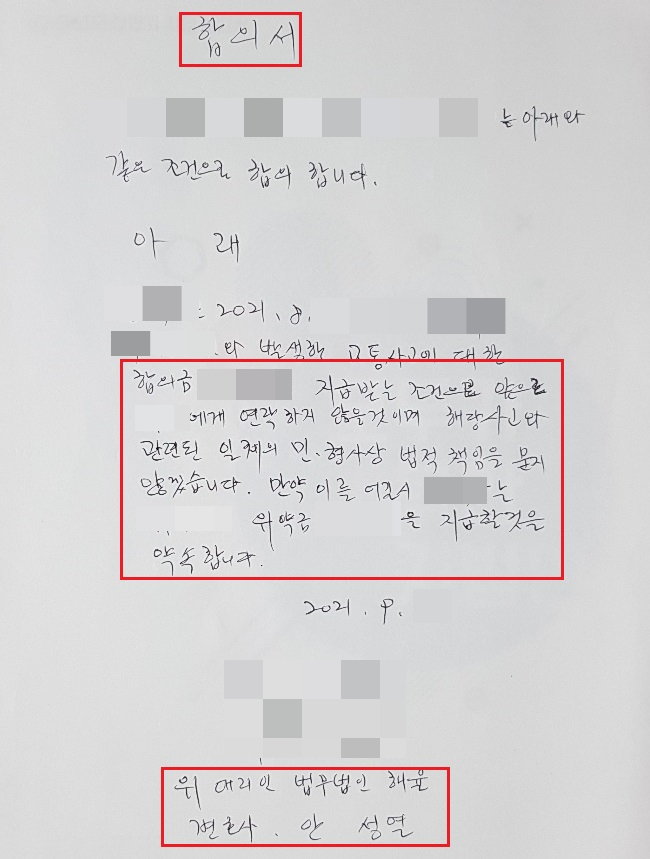 합의서
는 아래와
같은 조건으로 합의 합니다.
아 래
: 2021. 8.
와 발생한 교통사고에 대한
합의금 지급받는 조건으로 앞으로
에게 연락하지 않을것이며 해당사고와
관련된 일체의 민.형사상 법적 책임을 묻지
않겠습니다. 만약 이를 어길시 는
위약금 을 지급할것을
약속합니다.
2021. 9.
위 대리인 법무법인 해율
변호사. 안 성열